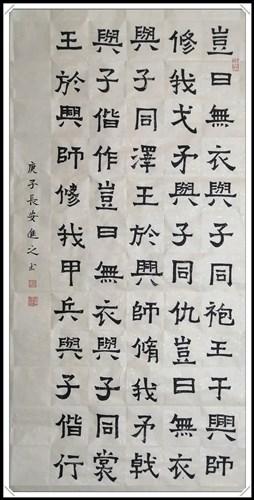 豈曰無衣與子同袍王于興師
修我戈矛與子同仇豈曰無衣
與子同澤王於興師脩我矛戟
與子偕作豈曰無衣與子同裳
王於興師修我甲兵與子偕行
庚子長安進之书